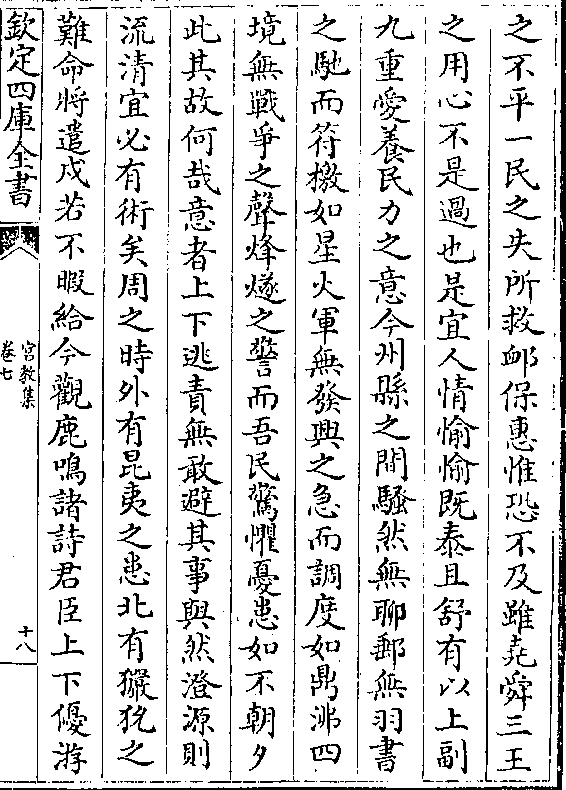 之不平一民之失所救䘏保惠惟恐不及雖堯舜三王
之用心不是過也是宜人情愉愉既泰且舒有以上副
九重愛養民力之意今州縣之間騷然無聊郵無羽書
之馳而符檄如星火軍無發興之急而調度如鼎沸四
境無戰爭之聲烽燧之警而吾民驚懼憂患如不朝夕
此其故何哉意者上下逃責無敢避其事與然澄源則
流清宜必有術矣周之時外有昆夷之患北有玁狁之
難命將遣戍若不暇給今觀鹿鳴諸詩君臣上下優游
欽定四庫全書
宮教集
卷七
十八